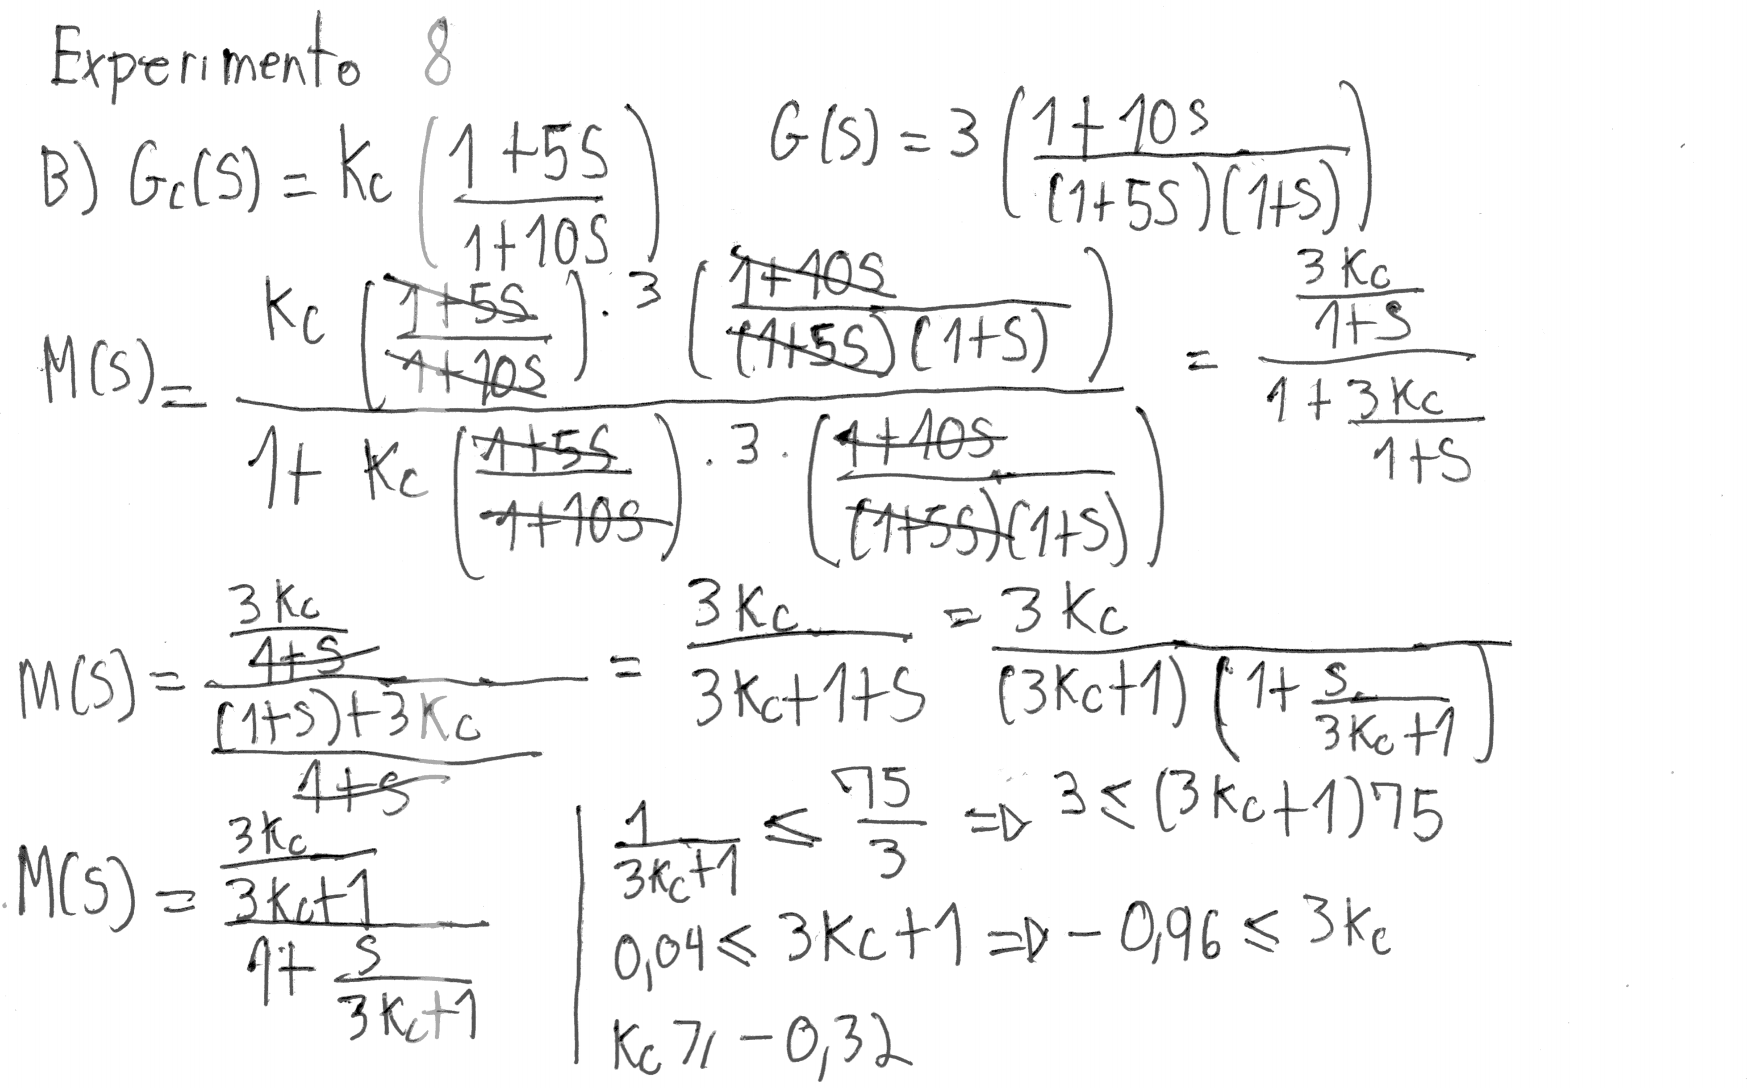 Experimento 8
B) Gc(S) = Kc ( (1+5S) / (1+10S) )   G(S) = 3 ( (1+10S) / ((1+5S)(1+S)) )
M(S) = ( Kc ( (1+5S) / (1+10S) ) . 3 ( (1+10S) / ((1+5S)(1+S)) ) ) / ( 1 + Kc ( (1+5S) / (1+10S) ) . 3 . ( (1+10S) / ((1+5S)(1+S)) ) ) = ( 3Kc / (1+S) ) / ( 1 + 3Kc / (1+S) )
M(S) = ( 3Kc / (1+S) ) / ( ((1+S)+3Kc) / (1+S) ) = 3Kc / (3Kc+1+S) = 3Kc / ( (3Kc+1) ( 1 + S / (3Kc+1) ) )
M(S) = ( 3Kc / (3Kc+1) ) / ( 1 + S / (3Kc+1) )
1 / (3Kc+1) ≤ 75 / 3 ⇒ 3 ≤ (3Kc+1)75
0,04 ≤ 3Kc+1 ⇒ -0,96 ≤ 3Kc
Kc ≥ -0,32